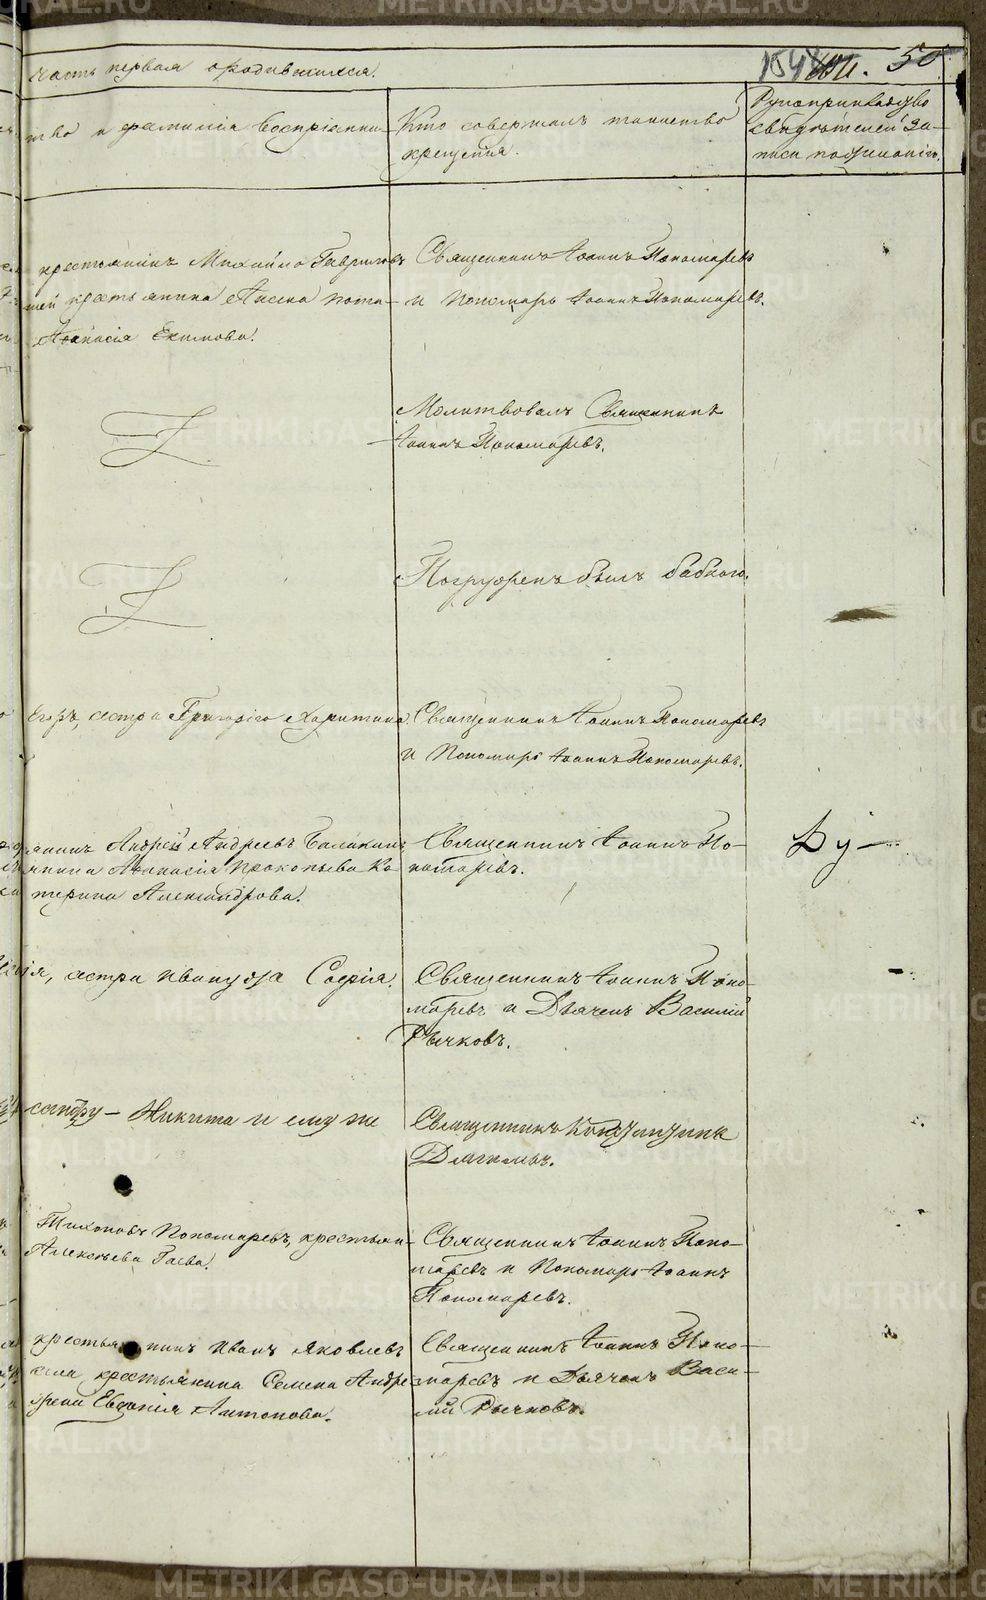 Часть первая о родившихся.
50
тво и фамилія воспріемни-
Кто совершалъ таинство
крещенія.
Рукоприкладство
свидѣтелей за-
писи по желанію.
крестьянинъ Михайло Гавриловъ
крестьянина
Аѳанасія Екимова.
Священникъ Іоаннъ Пономаревъ
и Пономарь Іоаннъ Пономаревъ.
Молитвовалъ Священникъ
Іоаннъ Пономаревъ.
Погруженъ былъ бабкою.
Егоръ, сестра Григорію Харитина.
Священникъ Іоаннъ Пономаревъ
и Пономарь Іоаннъ Пономаревъ.
Андрей Андреевъ
Аѳанасія Прокопьева Ка-
терина Александрова.
Священникъ Іоаннъ По-
номаревъ.
сестра Софія.
Священникъ Іоаннъ Поно-
маревъ и Дьячекъ Василій
Рычковъ.
сестру - Никита и ему же
Священникъ Константинъ
Тихоновъ Пономаревъ, крестьяни-
Алексѣева Гаева.
Священникъ Іоаннъ Поно-
маревъ и Пономарь Іоаннъ
Пономаревъ.
крестьянинъ Иванъ Яковлевъ
крестьянина Семена Андре-
Евгенія Антонова.
Священникъ Іоаннъ Поно-
маревъ и Дьячекъ Васи-
лій Рычковъ.
METRIKI.GASO-URAL.RU